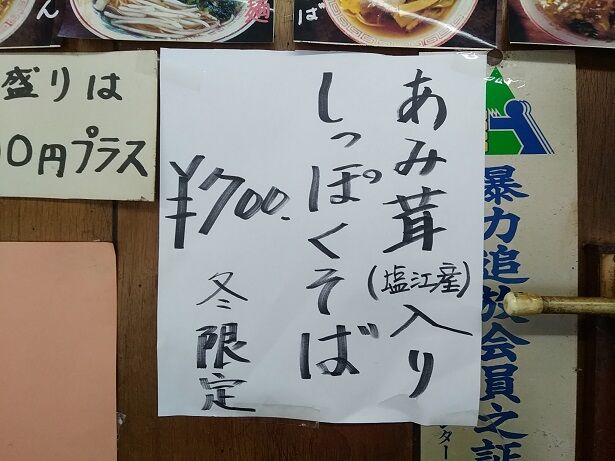 あみ茸(塩江産)入り
しっぽくそば
¥700.
冬限定
盛りは
00円プラス
暴力追放会員之証
ター
ん
ば